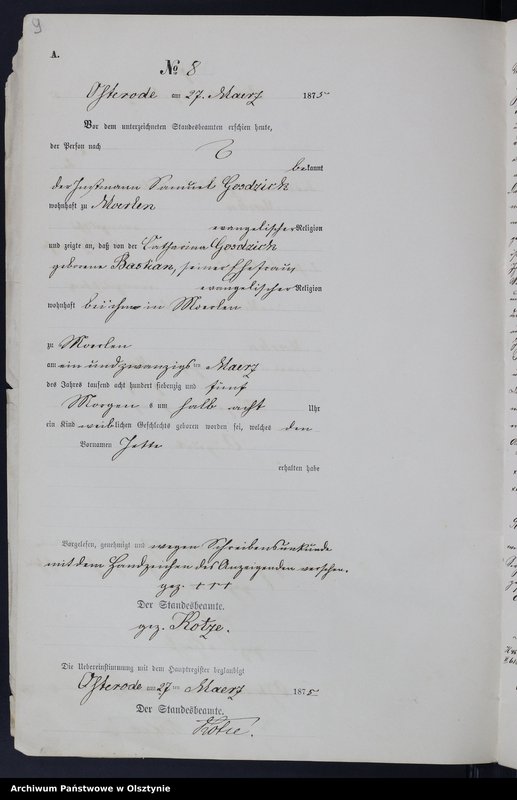 9
A.
No 8
Osterode am 27. Maerz 1875
Vor dem unterzeichneten Standesbeamten erschien heute,
der Person nach
bekannt
der Instmann Samuel Gosdzich
wohnhaft zu Moerlen
evangelischer Religion
und zeigte an, daß von der Catharina Gosdzich
geborene Baskan, seiner Ehefrau,
evangelischer Religion
wohnhaft bei ihm in Moerlen
zu Moerlen
am ein und zwanzigsten Maerz
des Jahres tausend acht hundert siebenzig und fünf
Morgens um halb acht Uhr
ein Kind weiblichen Geschlechts geboren worden sei, welches den
Vornamen Jette
erhalten habe
Vorgelesen, genehmigt und wegen Schreibensunkunde
mit dem Handzeichen des Anzeigenden versehen.
gez. + + +
Der Standesbeamte.
gez. Kotze.
Die Uebereinstimmung mit dem Hauptregister beglaubigt
Osterode am 27ten Maerz 1875
Der Standesbeamte.
Kotze.
Archiwum Państwowe w Olsztynie